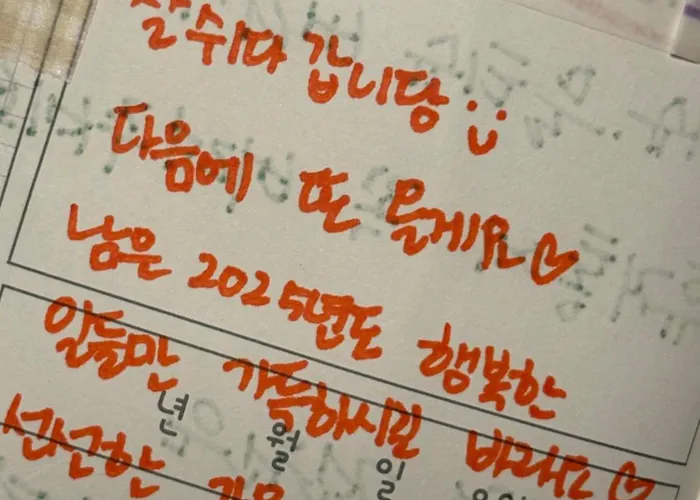 잘 쉬다 갑니당
다음에 또 올게요♡
남은 2025년도 행복한
일들만 가득하시길 바라요♡
년 월 일